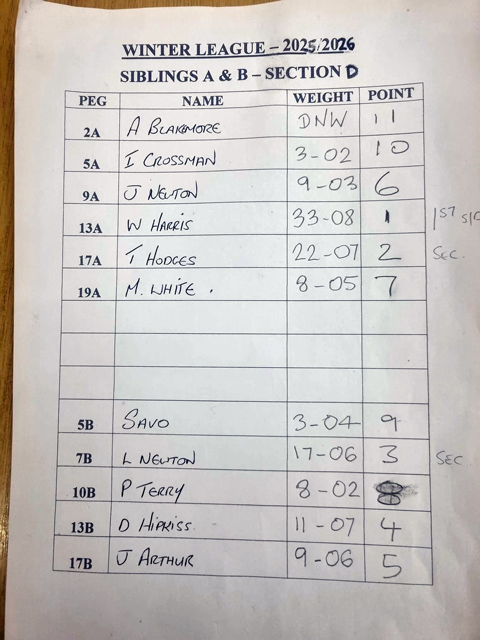 WINTER LEAGUE – 2025/2026
SIBLINGS A & B – SECTION D
PEG NAME WEIGHT POINT
2A A BLAKEMORE DNW 11
5A I CROSSMAN 3-02 10
9A J NEWTON 9-03 6
13A W HARRIS 33-08 1 1ST
17A T HODGES 22-07 2 SEC.
19A M. WHITE . 8-05 7
5B SAVO 3-04 9
7B L NEWTON 17-06 3 SEC
10B P TERRY 8-02 8
13B D HIPKISS 11-07 4
17B J ARTHUR 9-06 5